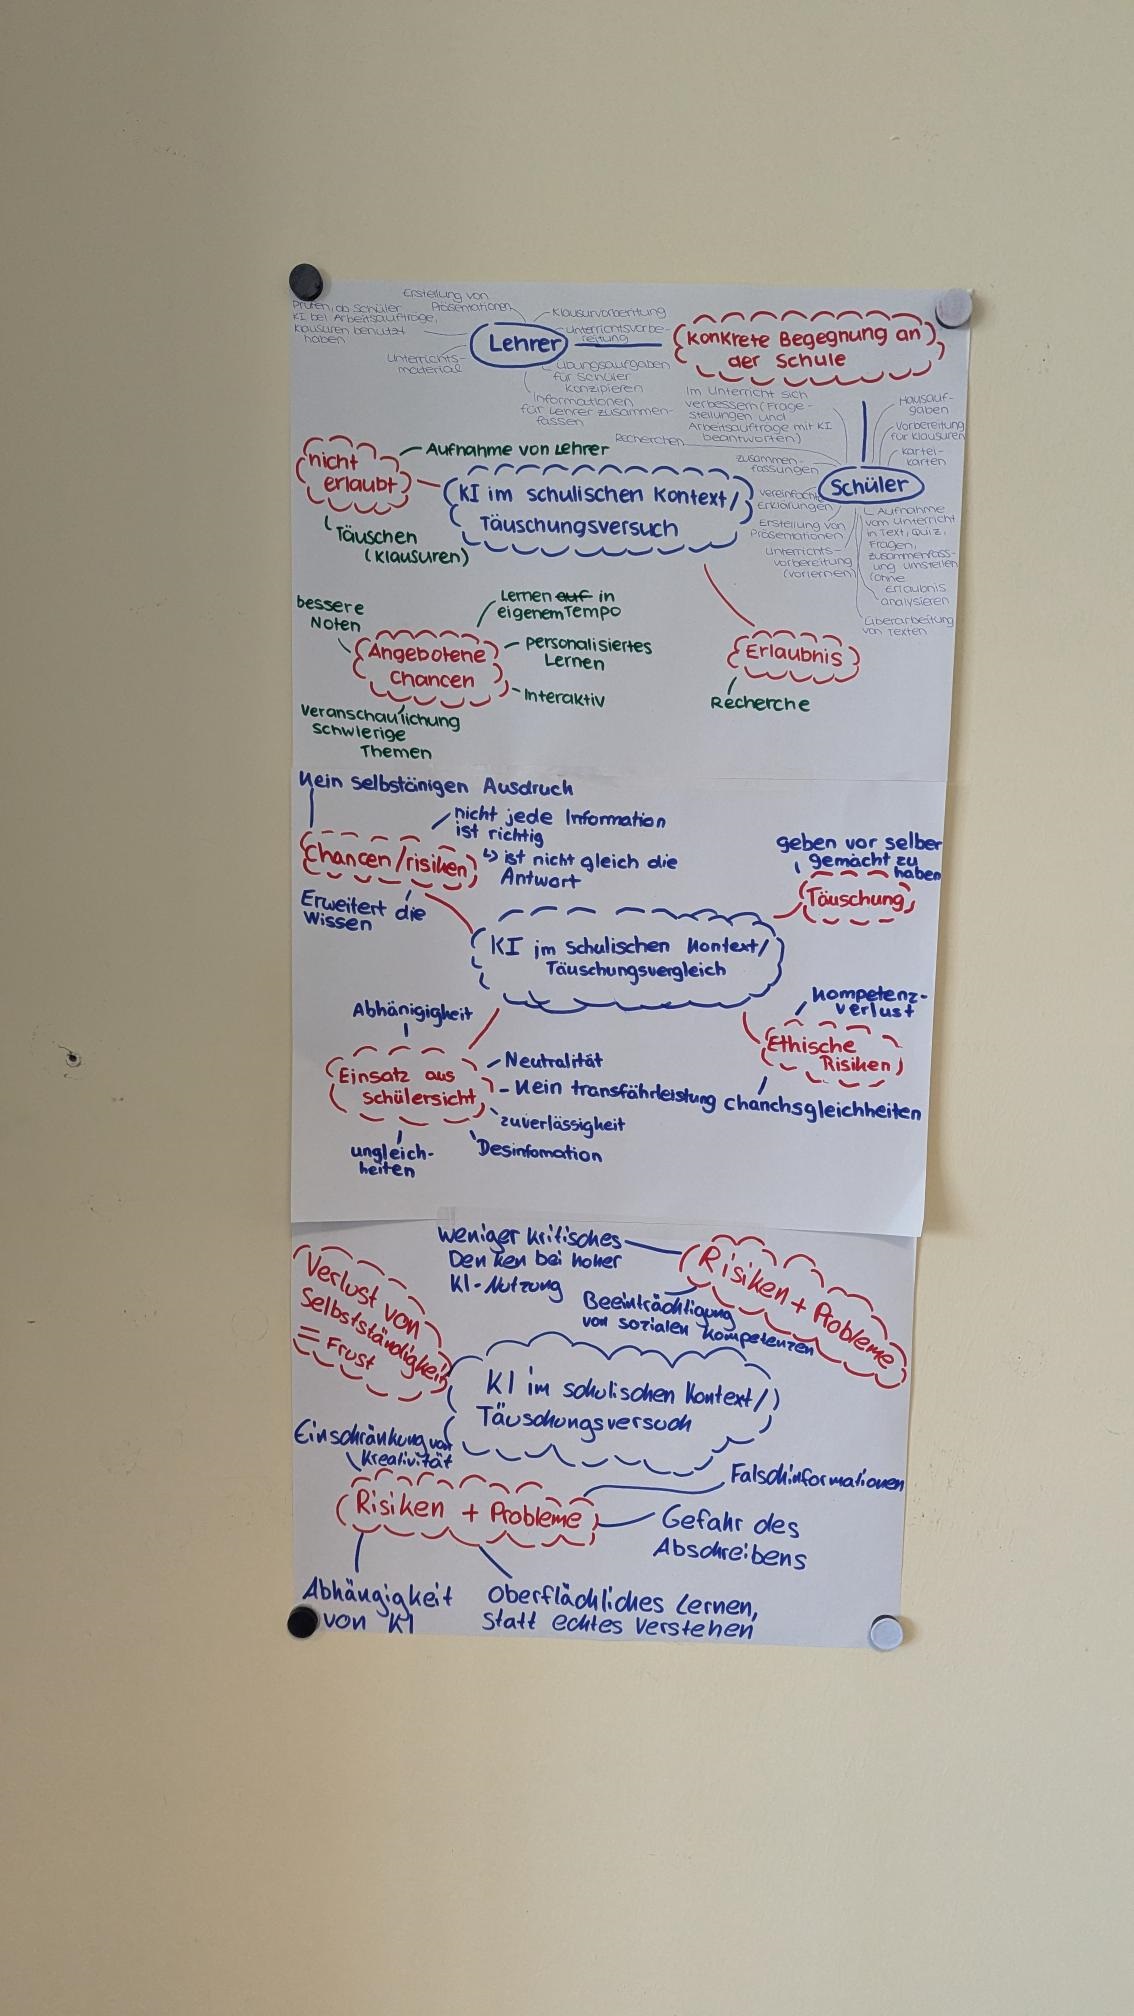 Erstellung von
Präsentationen
Prüfen, ob Schüler
KI bei Arbeitsaufträge,
Klausuren benutzt
haben
Unterrichts-
material
Lehrer
Klausurvorbereitung
Unterrichtsvorbe-
reitung
Übungsaufgaben
für Schüler
konzipieren
Informationen
für Lehrer zusammen-
fassen
Konkrete Begegnung an
der Schule
Im Unterricht sich
verbessern (Frage-
stellungen und
Arbeitsaufträge mit KI
beantworten)
Recherchen
zusammen-
fassungen
vereinfachte
Erklärungen
Erstellung von
Präsentationen
Unterrichts-
vorbereitung
(vorlernen)
Schüler
Hausauf-
gaben
Vorbereitung
für Klausuren
Kartei-
karten
Aufnahme
vom Unterricht
in Text, Quiz,
Fragen,
zusammenfass-
ung umstellen
(ohne
Erlaubnis
analysieren
Überarbeitung
von Texten
nicht
erlaubt
Aufnahme von Lehrer
Täuschen
(Klausuren)
KI im schulischen Kontext/
Täuschungsversuch
bessere
Noten
Lernen auf in
eigenem Tempo
Angebotene
Chancen
personalisiertes
Lernen
Interaktiv
Veranschaulichung
schwierige
Themen
Erlaubnis
Recherche
Kein selbstänigen Ausdruck
nicht jede Information
ist richtig
↳ ist nicht gleich die
Antwort
Chancen/risiken
Erweitert die
Wissen
geben vor selber
gemacht zu
haben
Täuschung
KI im schulischen Kontext/
Täuschungsvergleich
Abhänigigkeit
Einsatz aus
schülersicht
Neutralität
Kein transfährleistung
zuverlässigheit
Desinfomation
ungleich-
heiten
Kompetenz-
verlust
Ethische
Risiken
chanchsgleichheiten
weniger kritisches
Denken bei hoher
KI-Nutzung
Beeinträchtigung
von sozialen Kompetenzen
Risiken + Probleme
Verlust von
Selbstständigkeit
= Frust
KI im schulischen Kontext/
Täuschungsversuch
Einschränkung von
Kreativität
Risiken + Probleme
Falschinformationen
Gefahr des
Abschreibens
Abhängigkeit
von KI
Oberflächliches Lernen,
statt echtes Verstehen